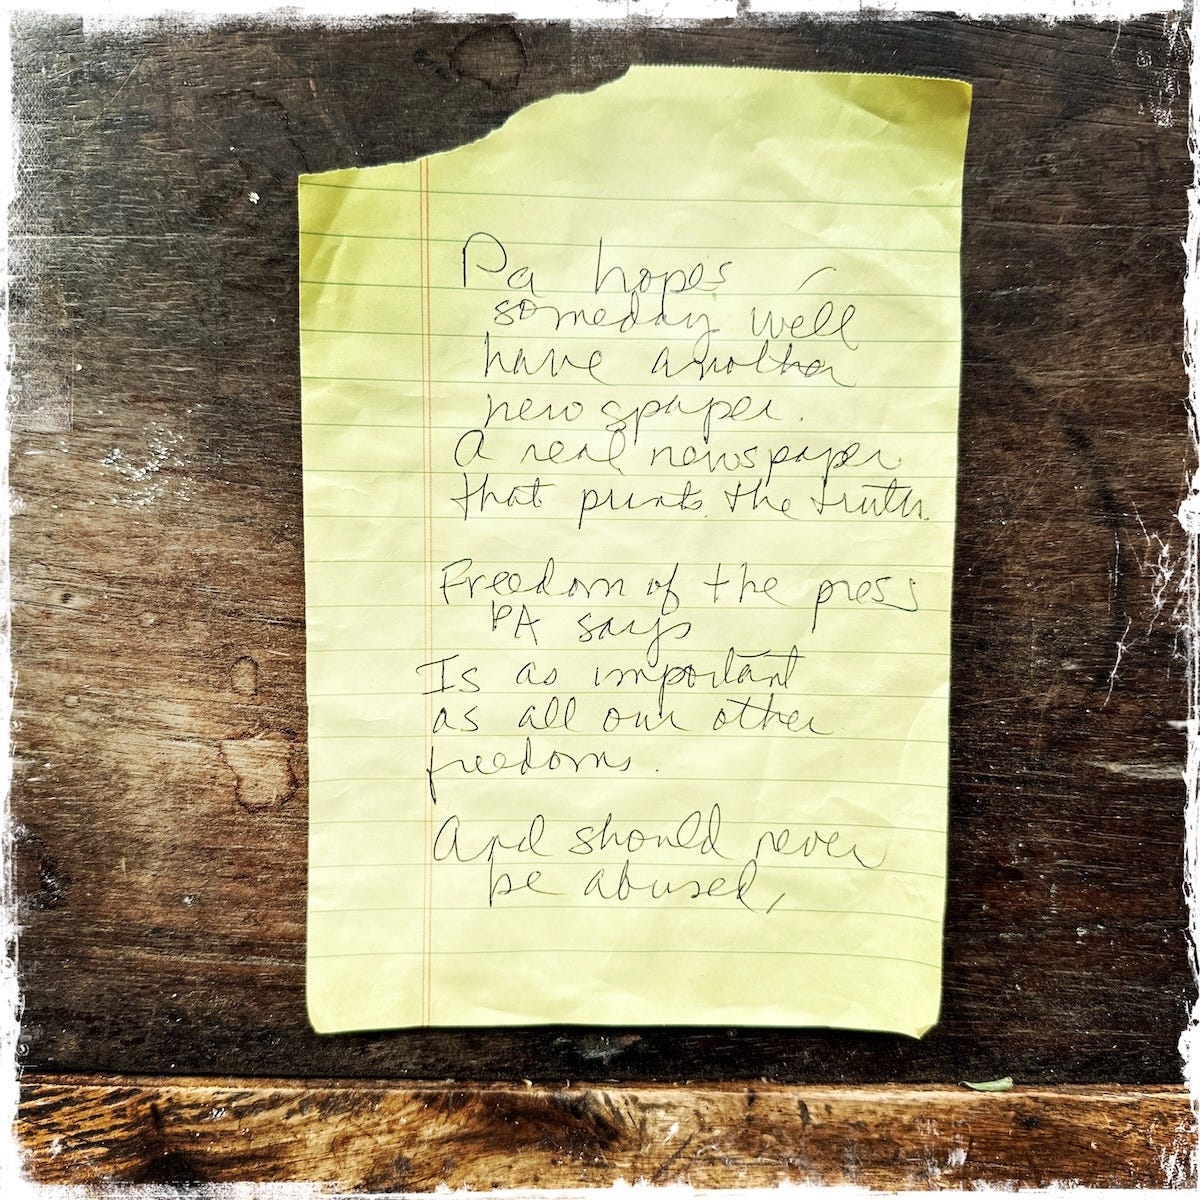 Pa hopes
someday we'll
have another
newspaper.
A real newspaper
that prints the truth.
Freedom of the press
PA says
Is as important
as all our other
freedoms.
And should never
be abused,